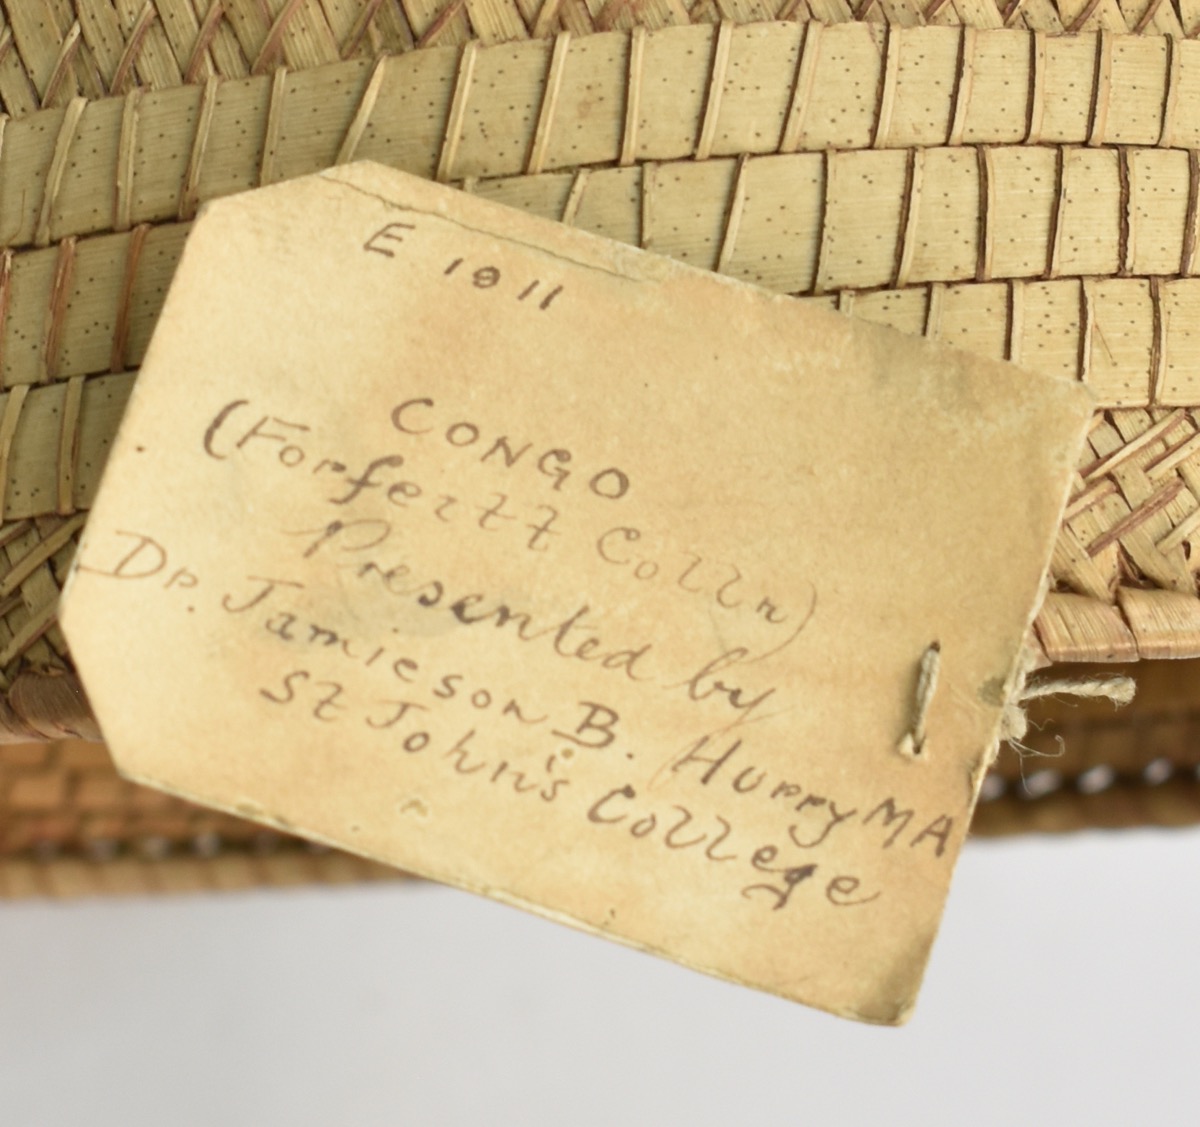 E 1011
CONGO
(Forfeitt Colln)
Presented by
Dr. Jamieson B. Hurry MA
St John's College